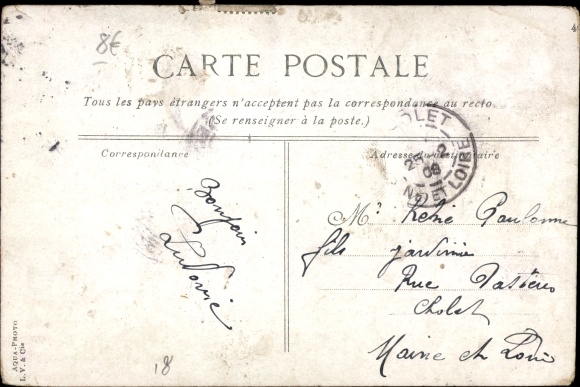 8€
4
CARTE POSTALE
Tous les pays étrangers n'acceptent pas la correspondance au recto
(Se renseigner à la poste.)
Correspondance
Adresse du destinataire
CHOLET
ET LOIRE
Bonjour
Ludovic
Mr René
fils jardinier
Rue
Cholet
Maine et Loire
18
AQUA-PHOTO
L. V. & Cie